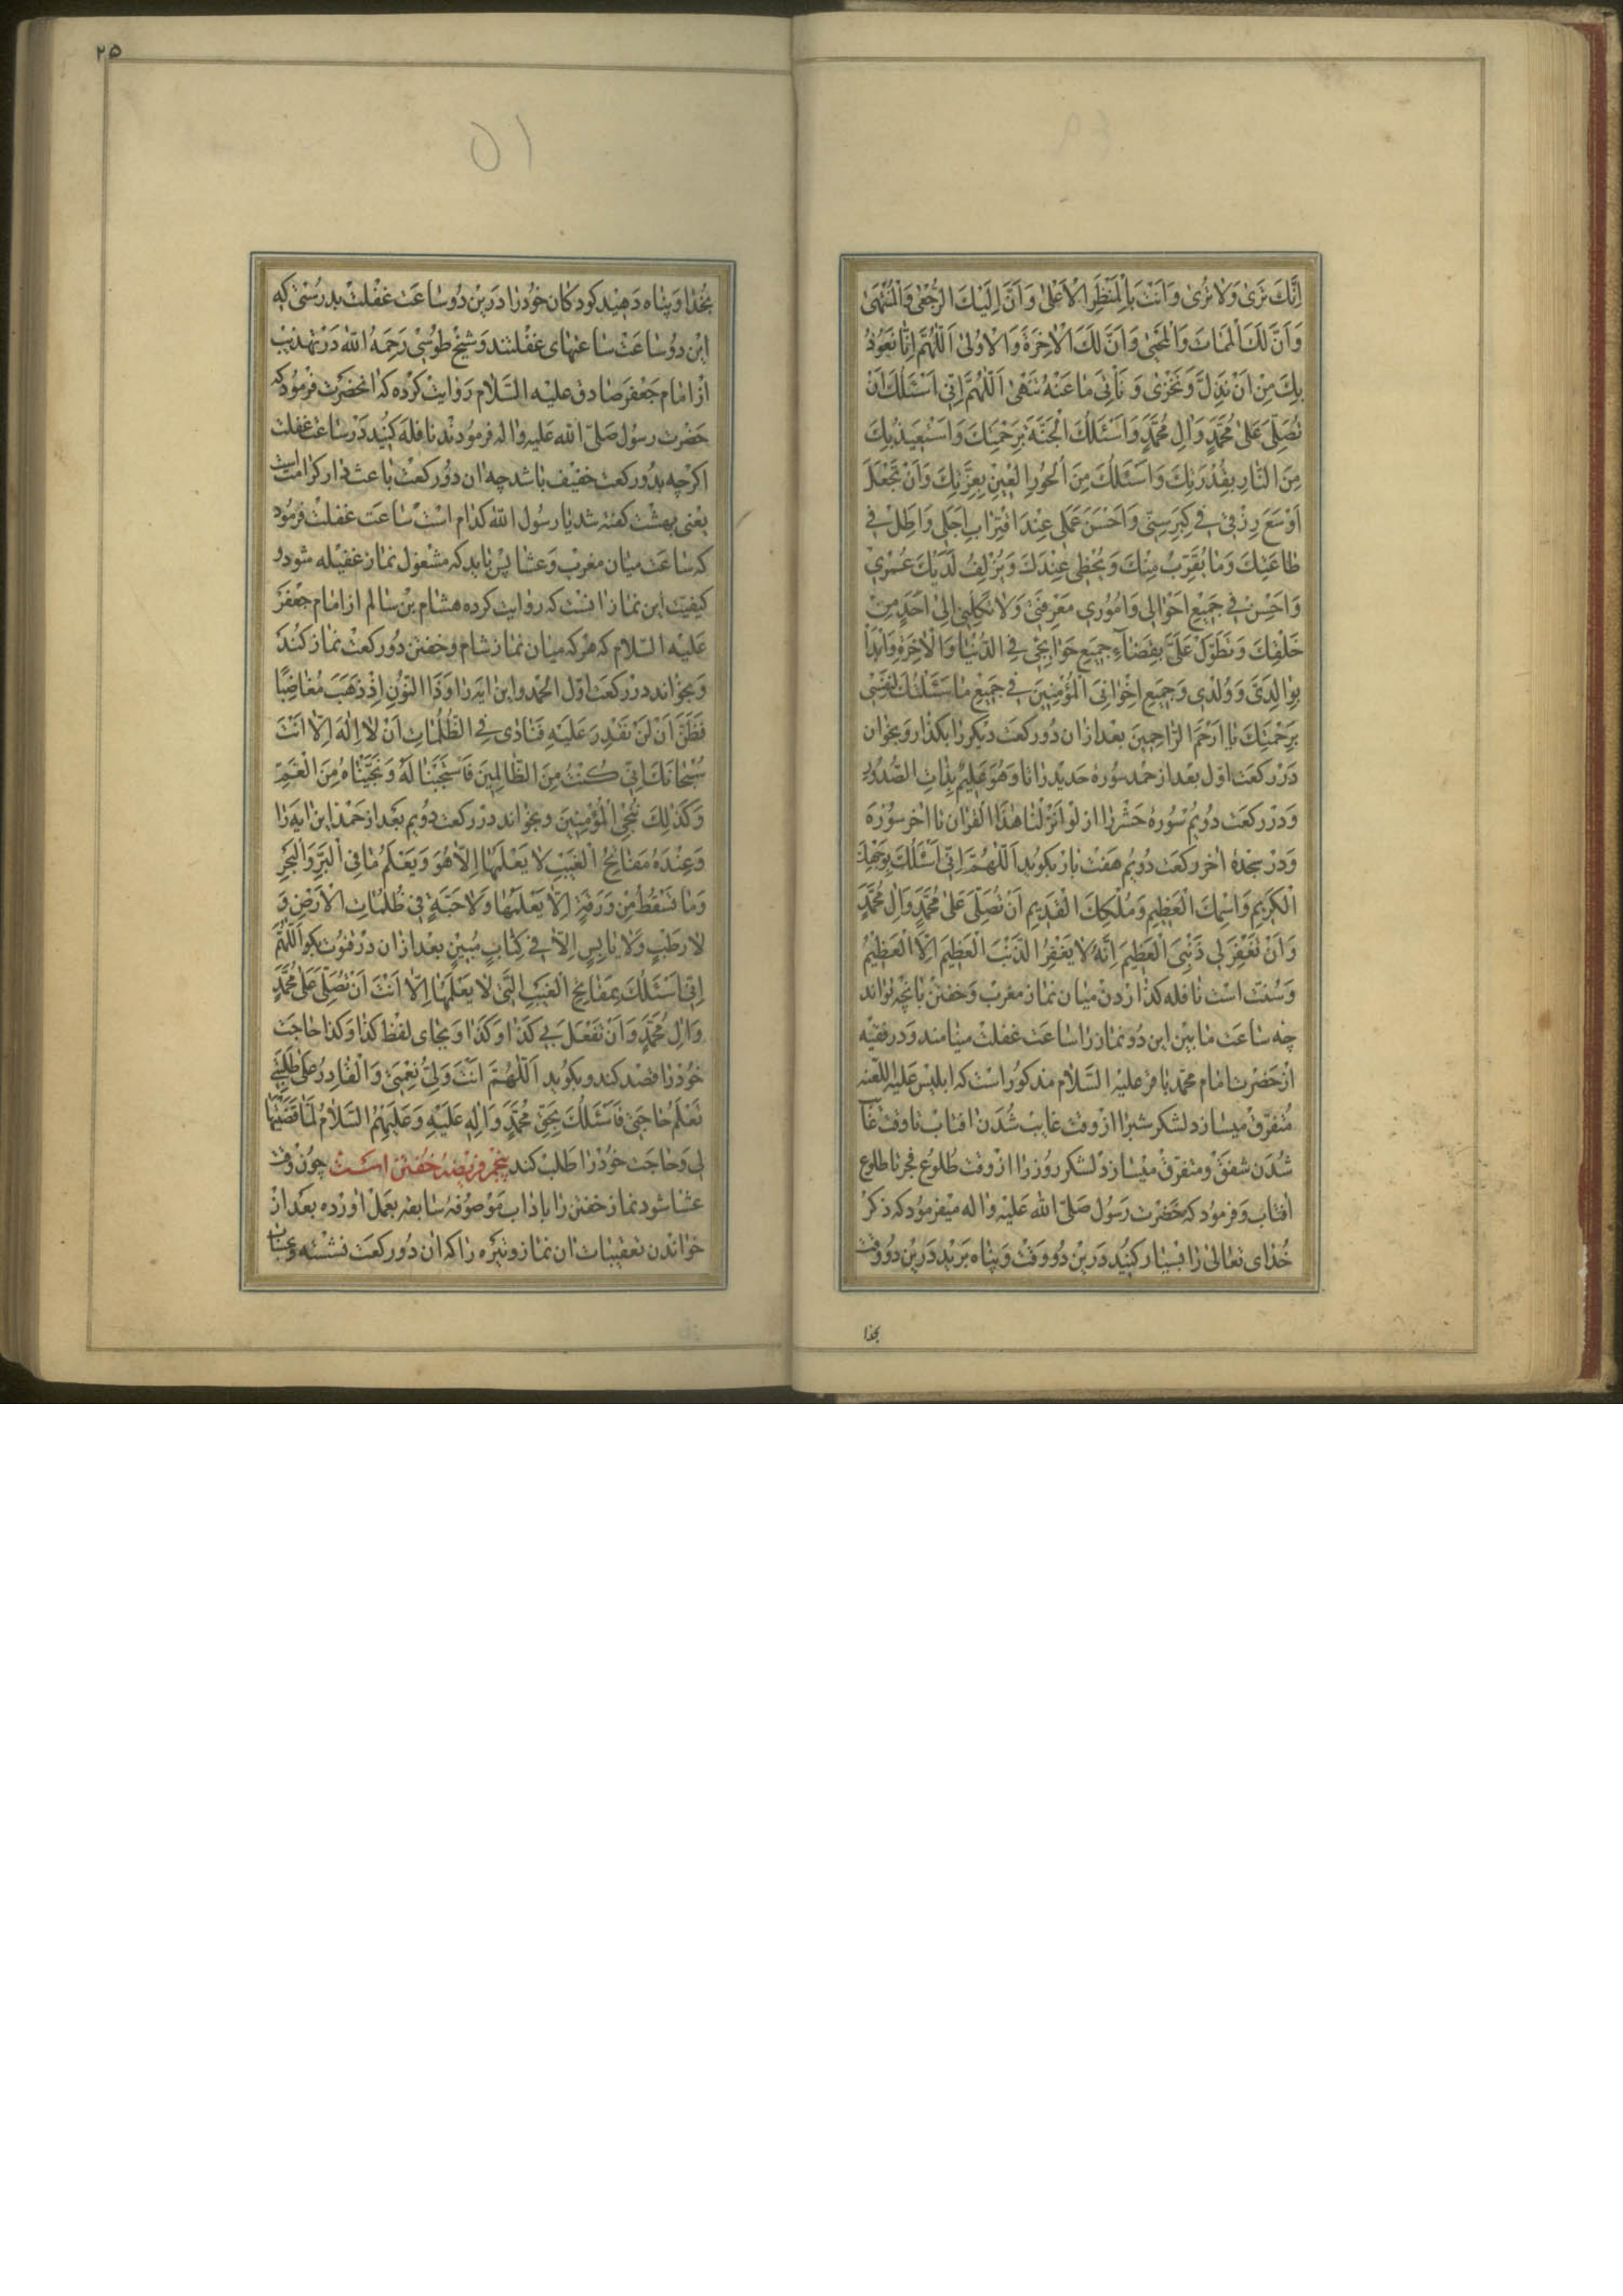 اِنَّكَ تَرىٰ وَلا تُرىٰ وَاَنْتَ بِالْمَنْظَرِ الْاَعْلىٰ وَاَنَّ اِلَيْكَ الرُّجْعىٰ وَالْمُنْتَهىٰ
وَاَنَّ لَكَ الْمَمٰاتَ وَالْمَحْيىٰ وَاَنَّ لَكَ الْاٰخِرَةَ وَالْاُولىٰ اَللّٰهُمَّ اِنّٰا نَعُوذُ
بِكَ مِنْ اَنْ نَذِلَّ وَنَخْزىٰ وَنَأْتِىَ مٰا عَنْهُ تَنْهىٰ اَللّٰهُمَّ اِنّى اَسْئَلُكَ اَنْ
تُصَلِّىَ عَلىٰ مُحَمَّدٍ وَاٰلِ مُحَمَّدٍ وَاَسْئَلُكَ الْجَنَّةَ بِرَحْمَتِكَ وَاَسْتَعيذُ بِكَ
مِنَ النّٰارِ بِقُدْرَتِكَ وَاَسْئَلُكَ مِنَ الْحُورِ الْعينِ بِعِزَّتِكَ وَاَنْ تَجْعَلَ
اَوْسَعَ رِزْقى فى كِبَرِ سِنّى وَاَحْسَنَ عَمَلى عِنْدَ اقْتِرٰابِ اَجَلى وَاَطِلْ فى
طٰاعَتِكَ وَمٰا يُقَرِّبُ مِنْكَ وَيُحْظى عِنْدَكَ وَيُزْلِفُ لَدَيْكَ عُمْرى
وَاَحْسِنْ فى جَميعِ اَحْوٰالى وَاُمُورى مَعْرِفَتى وَلا تَكِلْنى اِلىٰ اَحَدٍ مِنْ
خَلْقِكَ وَتَطَوَّلْ عَلَىَّ بِقَضٰاءِ جَميعِ حَوٰائِجى فِى الدُّنْيٰا وَالْاٰخِرَةِ وَابْدَأْ
بِوٰالِدَىَّ وَوُلْدى وَجَميعِ اِخْوٰانِىَ الْمُؤْمِنينَ فى جَميعِ مٰا سَئَلْتُكَ لِنَفْسى
بِرَحْمَتِكَ يٰا اَرْحَمَ الرّٰاحِمينَ بعد ازان دو ركعت ديكر را بكذار وبخوان
در ركعت اول بعد از حمد سورۀ حديد را تا وَهُوَ عَليمٌ بِذٰاتِ الصُّدُورِ
ودر ركعت دويم سورۀ حشر را از لَوْ اَنْزَلْنٰا هٰذَا الْقُرْاٰنَ تا اخر سوره
ودر سجدۀ اخر ركعت دويم هفت بار بكويد اَللّٰهُمَّ اِنّى اَسْئَلُكَ بِوَجْهِكَ
الْكَريمِ وَاسْمِكَ الْعَظيمِ وَمُلْكِكَ الْقَديمِ اَنْ تُصَلِّىَ عَلىٰ مُحَمَّدٍ وَاٰلِ مُحَمَّدٍ
وَاَنْ تَغْفِرَ لى ذَنْبِىَ الْعَظيمَ اِنَّهُ لا يَغْفِرُ الذَّنْبَ الْعَظيمَ اِلَّا الْعَظيمُ
وسنت است نافله كذاردن ميان نماز مغرب وخفتن بانچه تواند
چه ساعت مابين اين دو نماز را ساعت غفلت مينامند ودر فقيه
از حضرت امام محمد باقر عليه السلام مذكور است كه ابليس عليه اللعنه
متفرق ميسازد لشكر شبرا از وقت غايب شدن افتاب تا وقت غايب
شدن شفق ومتفرق ميسازد لشكر روز را از وقت طلوع فجر تا طلوع
افتاب وفرمود كه حضرت رسول صلى الله عليه واله ميفرمود كه ذكر
خداى تعالى را بسيار كنيد درين دو وقت وپناه بريد درين دو وقت
بخدا
٢٥
٥١
بخدا وپناه دهيد كودكان خود را درين دو ساعت غفلت بدرستى كه
اين دو ساعت ساعتهاى غفلتند وشيخ طوسى رحمه الله در تهذيب
از امام جعفر صادق عليه السلام روايت كرده كه انحضرت فرمود كه
حضرت رسول صلى الله عليه واله فرمودند نافله كنيد در ساعت غفلت
اكرچه بدو ركعت خفيف باشد چه ان دو ركعت باعث دار كرامت است
يعنى بهشت كفته شد يا رسول الله كدام است ساعت غفلت فرمود
كه ساعت ميان مغرب وعشا پس بايد كه مشغول نماز غفيله شود و
كيفيت اين نماز انست كه روايت كرده هشام بن سالم از امام جعفر
عليه السلام كه هر كه ميان نماز شام وخفتن دو ركعت نماز كند
وبخواند در ركعت اول الحمد واين ايه را وَذَا النُّونِ اِذْ ذَهَبَ مُغٰاضِبًا
فَظَنَّ اَنْ لَنْ نَقْدِرَ عَلَيْهِ فَنٰادىٰ فِى الظُّلُمٰاتِ اَنْ لٰا اِلٰهَ اِلّٰا اَنْتَ
سُبْحٰانَكَ اِنّى كُنْتُ مِنَ الظّٰالِمينَ فَاسْتَجَبْنٰا لَهُ وَنَجَّيْنٰاهُ مِنَ الْغَمِّ
وَكَذٰلِكَ نُنْجِى الْمُؤْمِنينَ وبخواند در ركعت دويم بعد از حمد اين ايه را
وَعِنْدَهُ مَفٰاتِحُ الْغَيْبِ لا يَعْلَمُهٰا اِلّٰا هُوَ وَيَعْلَمُ مٰا فِى الْبَرِّ وَالْبَحْرِ
وَمٰا تَسْقُطُ مِنْ وَرَقَةٍ اِلّٰا يَعْلَمُهٰا وَلا حَبَّةٍ فى ظُلُمٰاتِ الْاَرْضِ وَ
لا رَطْبٍ وَلا يٰابِسٍ اِلّٰا فى كِتٰابٍ مُبينٍ بعد ازان در قنوت بكو اَللّٰهُمَّ
اِنّى اَسْئَلُكَ بِمَفٰاتِحِ الْغَيْبِ الَّتى لا يَعْلَمُهٰا اِلّٰا اَنْتَ اَنْ تُصَلِّىَ عَلىٰ مُحَمَّدٍ
وَاٰلِ مُحَمَّدٍ وَاَنْ تَفْعَلَ بى كَذٰا وَكَذٰا وبجاى لفظ كذا وكذا حاجت
خود را قصد كند وبكويد اَللّٰهُمَّ اَنْتَ وَلِىُّ نِعْمَتى وَالْقٰادِرُ عَلىٰ طَلِبَتى
تَعْلَمُ حٰاجَتى فَاَسْئَلُكَ بِحَقِّ مُحَمَّدٍ وَاٰلِهِ عَلَيْهِ وَعَلَيْهِمُ السَّلٰامُ لَمّٰا قَضَيْتَهٰا
لى وحاجت خود را طلب كند پنجم فريضۀ خفتن است چون وقت
عشا شود نماز خفتن را باداب موصوفه سابقه بعمل اورده بعد از
خواندن تعقيبات ان نماز وتيره را كه ان دو ركعت نشسته وبحساب